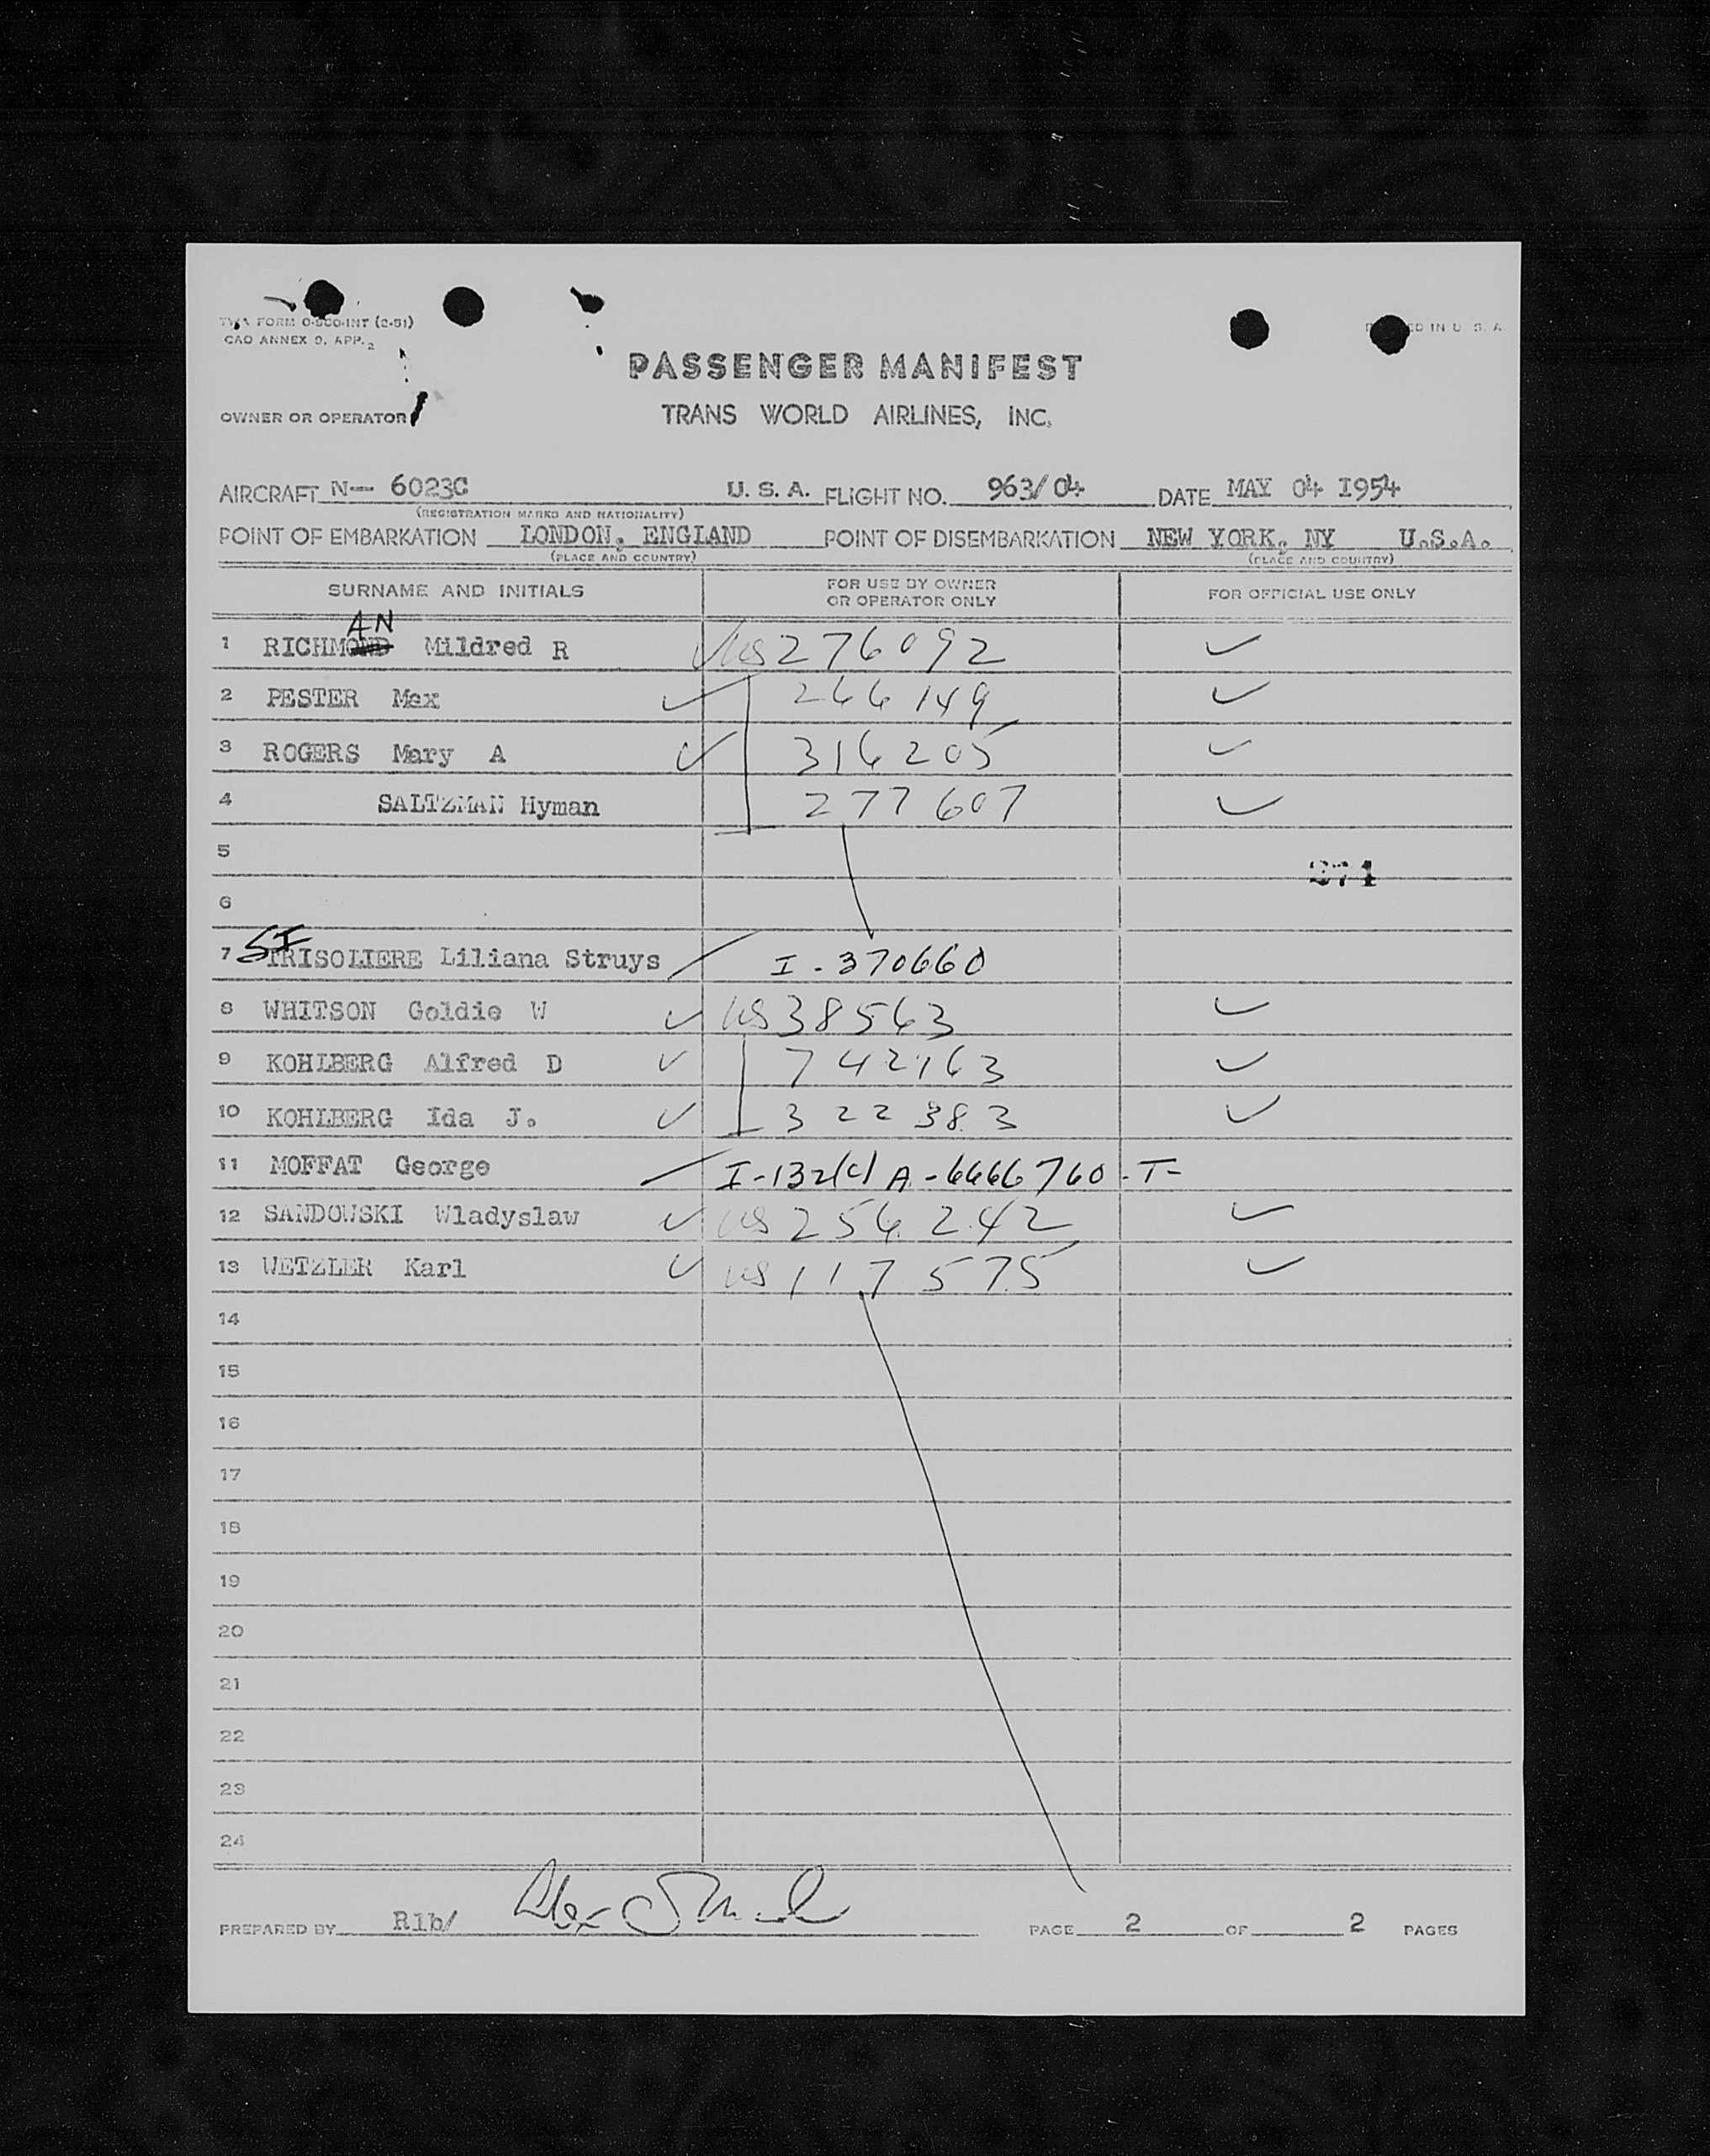 TWA FORM O-500-INT (2-51)
CAO ANNEX 9, APP. 2
PASSENGER MANIFEST
OWNER OR OPERATOR TRANS WORLD AIRLINES, INC.
AIRCRAFT N— 6023C U. S. A. FLIGHT NO. 963/04 DATE MAY 04 1954
(REGISTRATION MARKS AND NATIONALITY)
POINT OF EMBARKATION LONDON, ENGLAND POINT OF DISEMBARKATION NEW YORK, NY U.S.A.
(PLACE AND COUNTRY) (PLACE AND COUNTRY)
SURNAME AND INITIALS FOR USE BY OWNER OR OPERATOR ONLY FOR OFFICIAL USE ONLY
AN
1 RICHMOND Mildred R ✓ US 276092 ✓
2 PESTER Max ✓ 266149 ✓
3 ROGERS Mary A ✓ 316205 ✓
4 SALTZMAN Hyman 277607 ✓
5
271
6
7 TRISOLIERE Liliana Struys I-370660
8 WHITSON Goldie W ✓ US 38563 ✓
9 KOHLBERG Alfred D ✓ 742163 ✓
10 KOHLBERG Ida J. ✓ 322383 ✓
11 MOFFAT George I-132(c) A-6666760-T-
12 SANDOWSKI Wladyslaw ✓ US 256242 ✓
13 WETZLER Karl ✓ US 117575 ✓
14
15
16
17
18
19
20
21
22
23
24
PREPARED BY Rlb/ PAGE 2 OF 2 PAGES